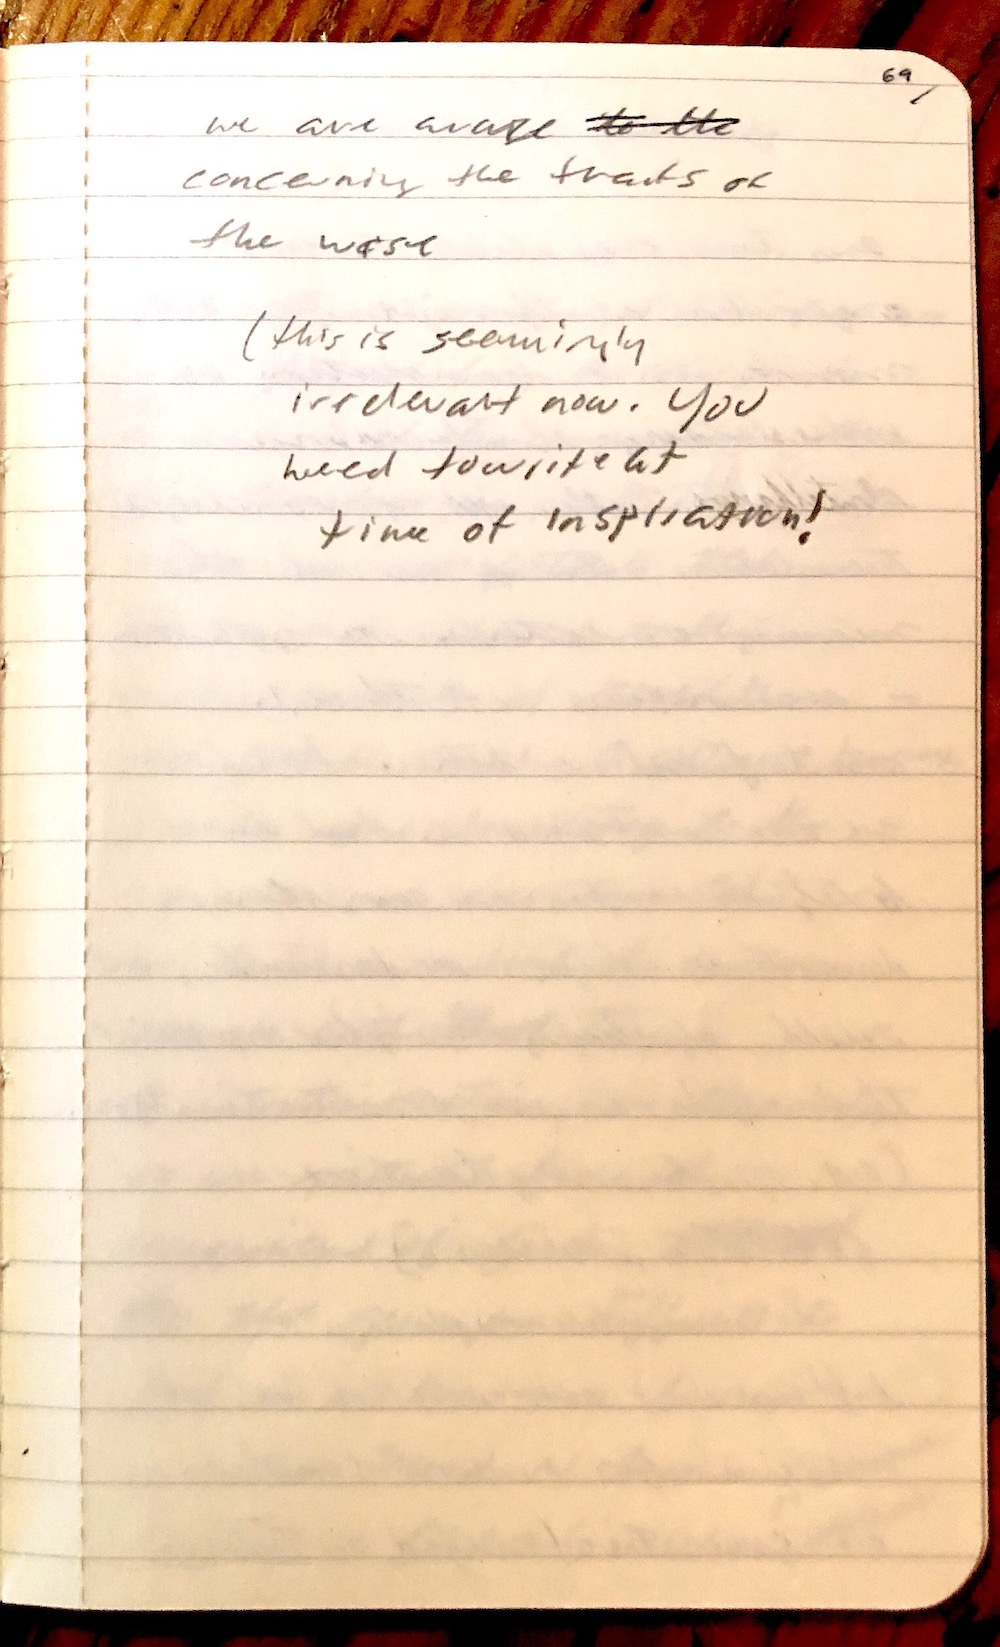 69
we are aware to the
concerning the traits of
the wise
(this is seemingly
irrelevant now. You
need to write at
time of inspiration!